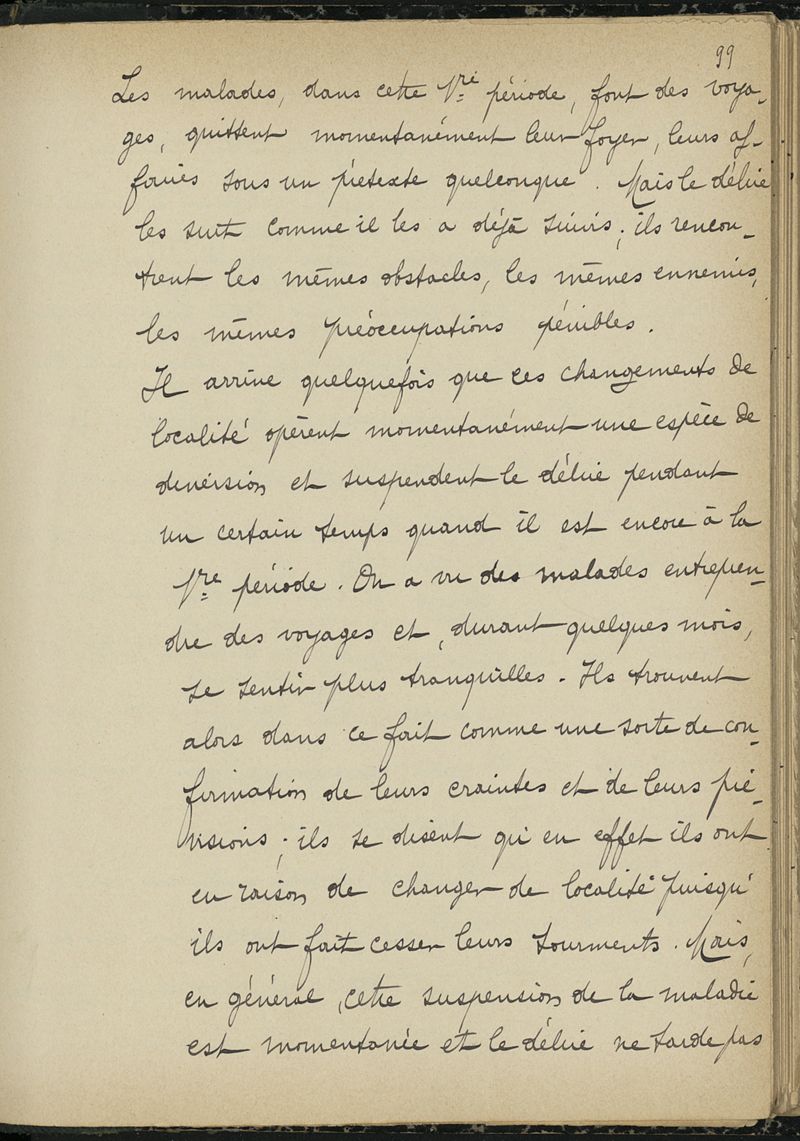 99
Les malades, dans cette 1re période, font des voya-
ges, quittent momentanément leur foyer, leurs af-
faires sous un prétexte quelconque. Mais le délire
les suit comme il les a déjà suivis; ils rencon-
trent les mêmes obstacles, les mêmes ennemis,
les mêmes préoccupations pénibles.
Il arrive quelquefois que ces changements de
localité opèrent momentanément une espèce de
diversion et suspendent le délire pendant
un certain temps quand il est encore à la
1re période. On a vu des malades entrepren-
dre des voyages et, durant quelques mois,
se sentir plus tranquilles. Ils trouvent
alors dans ce fait comme une sorte de con-
firmation de leurs craintes et de leurs pré-
visions; ils se disent qu'en effet ils ont
eu raison de changer de localité puisqu'
ils ont fait cesser leurs tourments. Mais,
en général, cette suspension de la maladie
est momentanée et le délire ne tarde pas